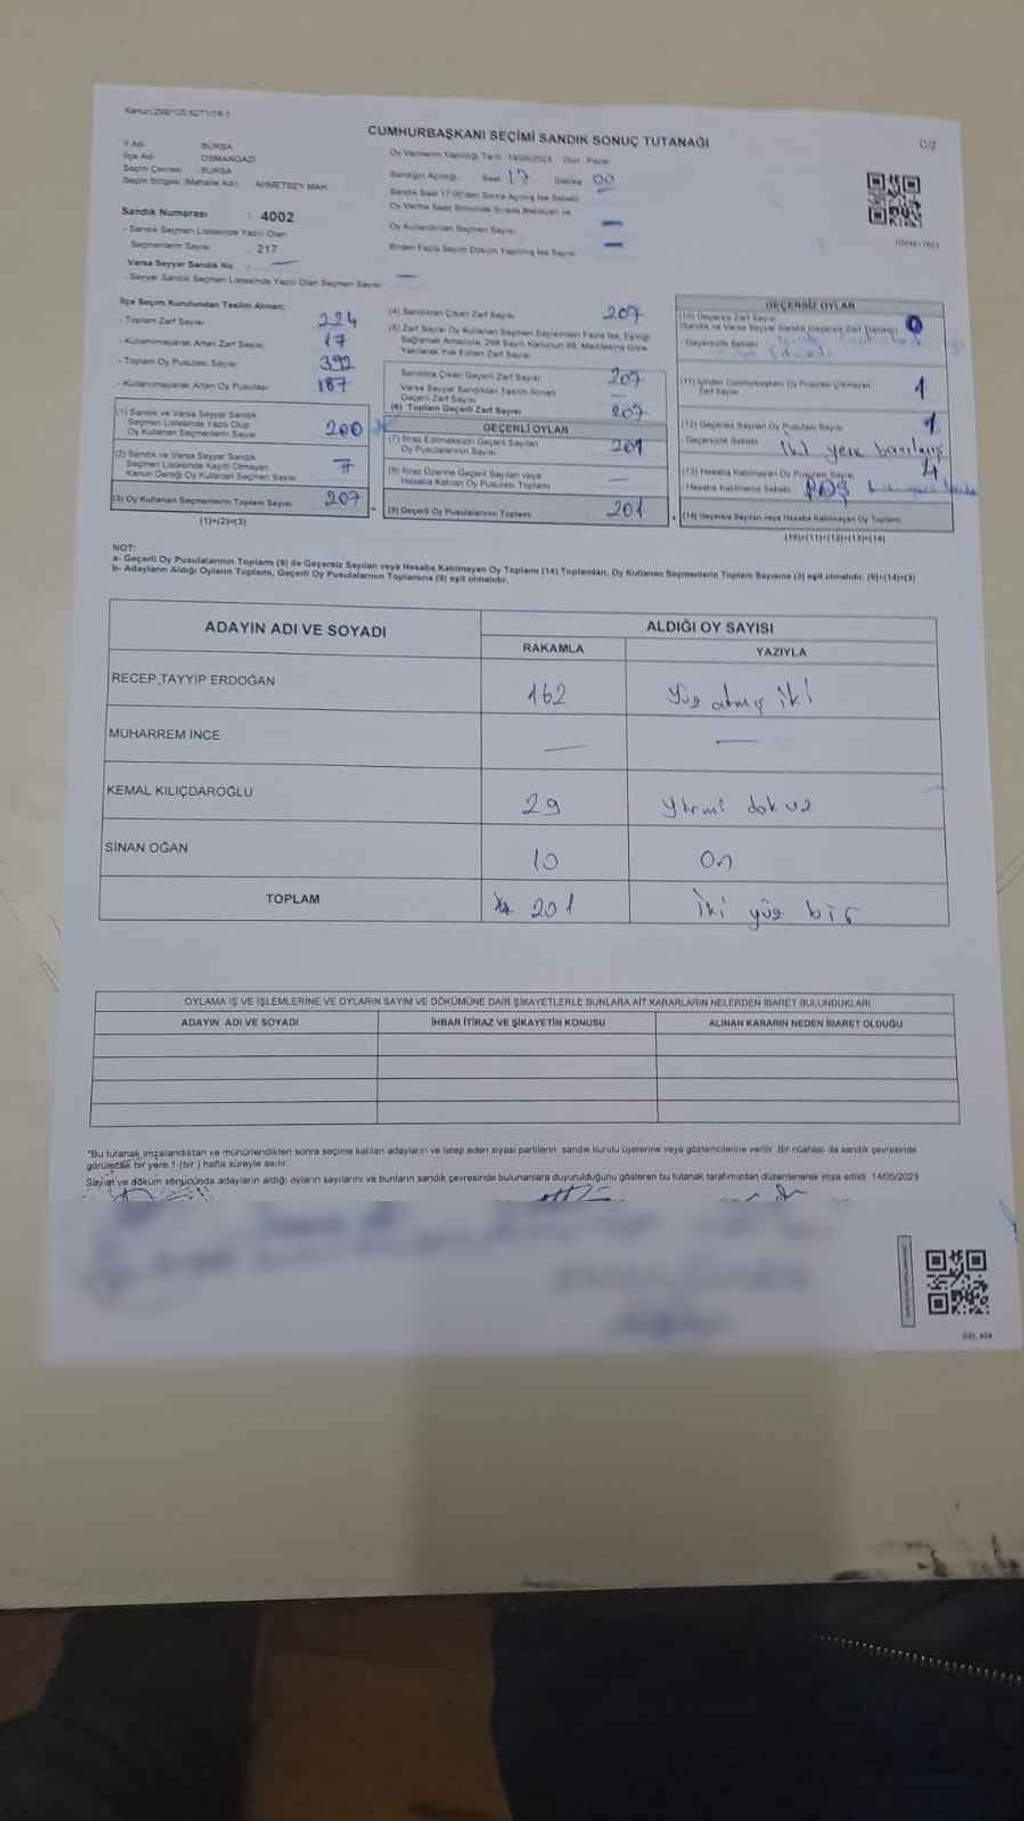 CUMHURBAŞKANI SEÇİMİ SANDIK SONUÇ TUTANAĞI
İl Adı BURSA
İlçe Adı OSMANGAZİ
Seçim Çevresi BURSA
Seçim Bölgesi (Mahalle Adı) AHMETBEY MAH.
Oy Vermenin Yapıldığı Tarih 14/05/2023 Gün Pazar
Sandığın Açıldığı Saat 17 Dakika 00
Sandık Saat 17:00'den Sonra Açılmış İse Sebebi
Oy Kullandırılan Seçmen Sayısı —
Birden Fazla Sayım Döküm Yapılmış İse Sayısı —
Sandık Numarası : 4002
- Sandık Seçmen Listesinde Yazılı Olan
Seçmenlerin Sayısı : 217
Varsa Seyyar Sandık No : —
- Seyyar Sandık Seçmen Listesinde Yazılı Olan Seçmen Sayısı —
İlçe Seçim Kurulundan Teslim Alınan;
- Toplam Zarf Sayısı 224
- Kullanılmayarak Artan Zarf Sayısı 17
- Toplam Oy Pusulası Sayısı 392
- Kullanılmayarak Artan Oy Pusulası 187
(1) Sandık ve Varsa Seyyar Sandık
Seçmen Listesinde Yazılı Olup
Oy Kullanan Seçmenlerin Sayısı 200
(2) Sandık ve Varsa Seyyar Sandık
Seçmen Listesinde Kayıtlı Olmayan
Kanun Gereği Oy Kullanan Seçmen Sayısı 7
(3) Oy Kullanan Seçmenlerin Toplam Sayısı 207
(1)+(2)=(3)
(4) Sandıktan Çıkan Zarf Sayısı 207
(5) Zarf Sayısı Oy Kullanan Seçmen Sayısından Fazla İse, Eşitliği
Sağlamak Amacıyla, 298 Sayılı Kanunun 98. Maddesine Göre
Yakılarak Yok Edilen Zarf Sayısı
Sandıkta Çıkan Geçerli Zarf Sayısı 207
Varsa Seyyar Sandıktan Teslim Alınan
Geçerli Zarf Sayısı —
(6) Toplam Geçerli Zarf Sayısı 207
GEÇERLİ OYLAR
(7) İtiraz Edilmeksizin Geçerli Sayılan
Oy Pusulalarının Sayısı 201
(8) İtiraz Üzerine Geçerli Sayılan veya
Hesaba Katılan Oy Pusulası Toplamı —
(9) Geçerli Oy Pusulalarının Toplamı 201
GEÇERSİZ OYLAR
(10) Geçersiz Zarf Sayısı
Geçersizlik Sebebi
(11) İçinden Cumhurbaşkanı Oy Pusulası Çıkmayan
Zarf Sayısı 1
(12) Geçersiz Sayılan Oy Pusulası Sayısı 1
Geçersizlik Sebebi İki yere basılmış
(13) Hesaba Katılmayan Oy Pusulası Sayısı 4
Hesaba Katılmama Sebebi
(14) Geçersiz Sayılan veya Hesaba Katılmayan Oy Toplamı
(10)+(11)+(12)+(13)=(14)
NOT:
a- Geçerli Oy Pusulalarının Toplamı (9) ile Geçersiz Sayılan veya Hesaba Katılmayan Oy Toplamı (14) Toplamları, Oy Kullanan Seçmenlerin Toplam Sayısına (3) eşit olmalıdır. (9)+(14)=(3)
b- Adayların Aldığı Oyların Toplamı, Geçerli Oy Pusulalarının Toplamına (9) eşit olmalıdır.
ADAYIN ADI VE SOYADI ALDIĞI OY SAYISI
RAKAMLA YAZIYLA
RECEP TAYYİP ERDOĞAN 162 Yüz atmış iki
MUHARREM İNCE — —
KEMAL KILIÇDAROĞLU 29 Yirmi dokuz
SİNAN OĞAN 10 On
TOPLAM 201 İki yüz bir
OYLAMA İŞ VE İŞLEMLERİNE VE OYLARIN SAYIM VE DÖKÜMÜNE DAİR ŞİKAYETLERLE BUNLARA AİT KARARLARIN NELERDEN İBARET BULUNDUKLARI
ADAYIN ADI VE SOYADI İHBAR İTİRAZ VE ŞİKAYETİN KONUSU ALINAN KARARIN NEDEN İBARET OLDUĞU
*Bu tutanak imzalandıktan ve mühürlendikten sonra seçime katılan adayların ve talep eden siyasi partilerin sandık kurulu üyelerine veya gözlemcilerine verilir. Bir nüshası da sandık çevresinde
görülecek bir yere 1 (bir) hafta süreyle asılır.
Sayım ve döküm sonucunda adayların aldığı oyların sayılarını ve bunların sandık çevresinde bulunanlara duyurulduğunu gösteren bu tutanak tarafımızdan düzenlenerek imza edildi. 14/05/2023